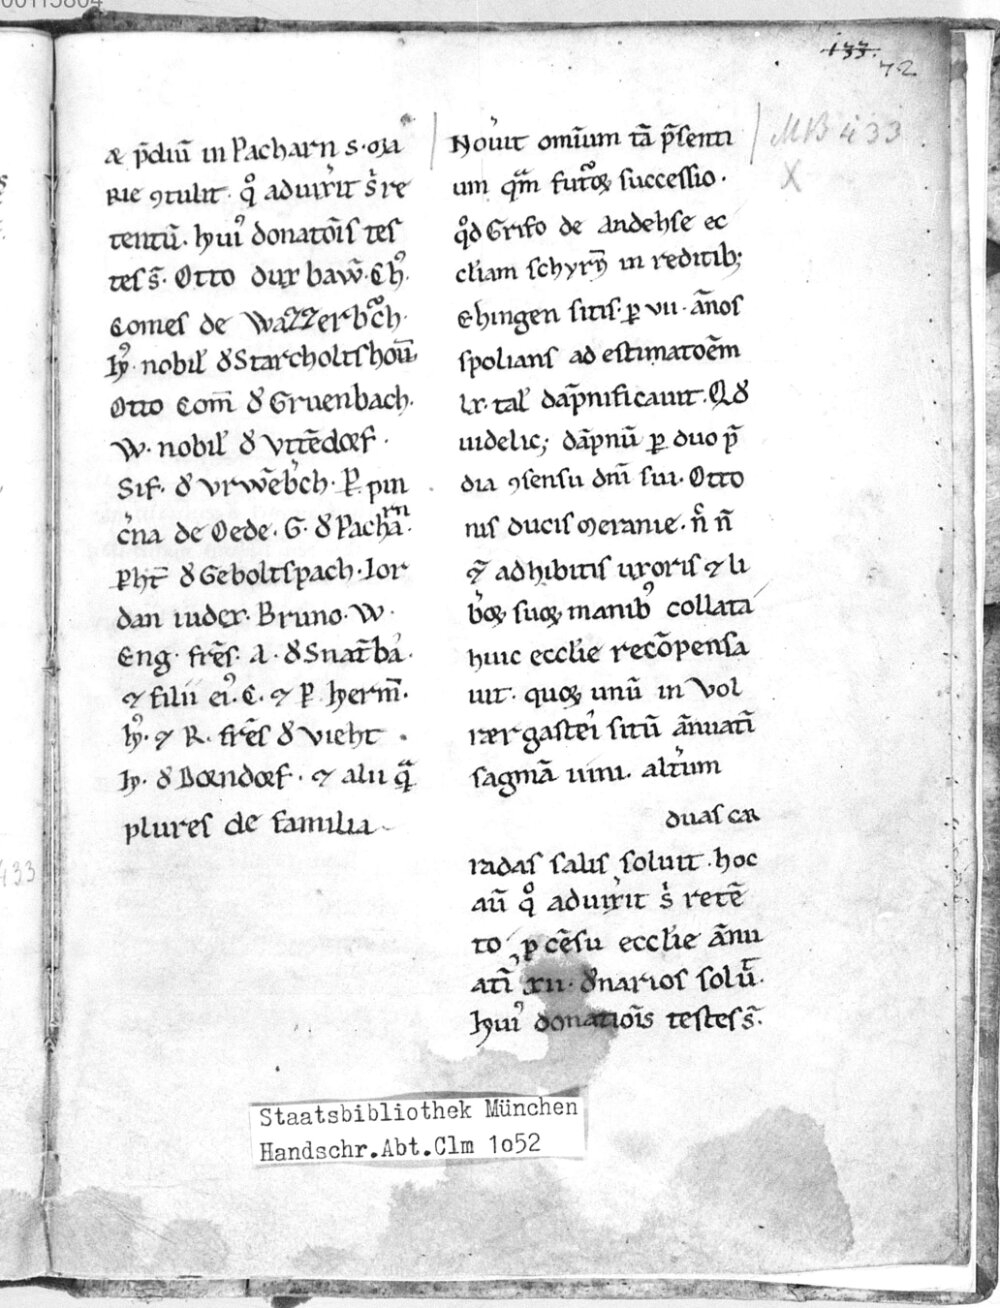 133.
72
MB 433
X
æ p̄diū in Pacharn S. Ma
rie ꝯtulit. qͦ aduixit s̓ re
tentū. hui᷒ donatōis tes
tes s̄. Otto dux baw̄. Ch᷒.
Comes de Wazzerbch.
H᷒. nobil̓ d̓ Starcholtshou̅.
Otto Com̅ d̓ Gruenbach.
W. nobil̓ d̓ Vttēdorf.
Sif. d̓ Vrwēbch. P. pin
c̓na de Oede. G. d̓ Pacharn.
Pht̄ d̓ Geboltspach. Ior
dan iudex. Bruno. W.
Eng. fr̄es. A. d̓ Snat̄ba.
⁊ filii ei᷒. C. ⁊ P. herm̄.
H᷒. ⁊ R. fr̄es d̓ Vieht.
H. d̓ Dorndorf. ⁊ alii qᷓ
plures de familia.
Nou̓it omīum tā p̄senti
um qᷓm futoꝝ successio.
qͦd Grifo de Andehse ec
cl̓iam schyrn̄ in reditib;
Ehingen sitis. ꝑ vii. ānos
spolians ad estimatoēm
lx. tal̓ dāpnificauit. Qd̓
uidelic; dāpnū ꝑ duo p̄
dia ꝯsensu dn̄i sui. Otto
nis ducis Meranie. n̊ n̄
⁊ adhibitis uxoris ⁊ li
b̓oꝝ suoꝝ manib᷒ collata
huic eccl̓ie recōpensa
uit. quoꝝ unū in Vol
rær gastei situ̅ ānuati̅
sagmā uini. alt̓um
duas car
radas salis soluit. hoc
aū qͦ aduix̓it s̓ retē
to ꝑ cēsu eccl̓ie ānu
ati̅ xii. d̓narios solū.
Hui᷒ donatiōis testes s̄.
433
Staatsbibliothek München
Handschr.Abt.Clm 1o52